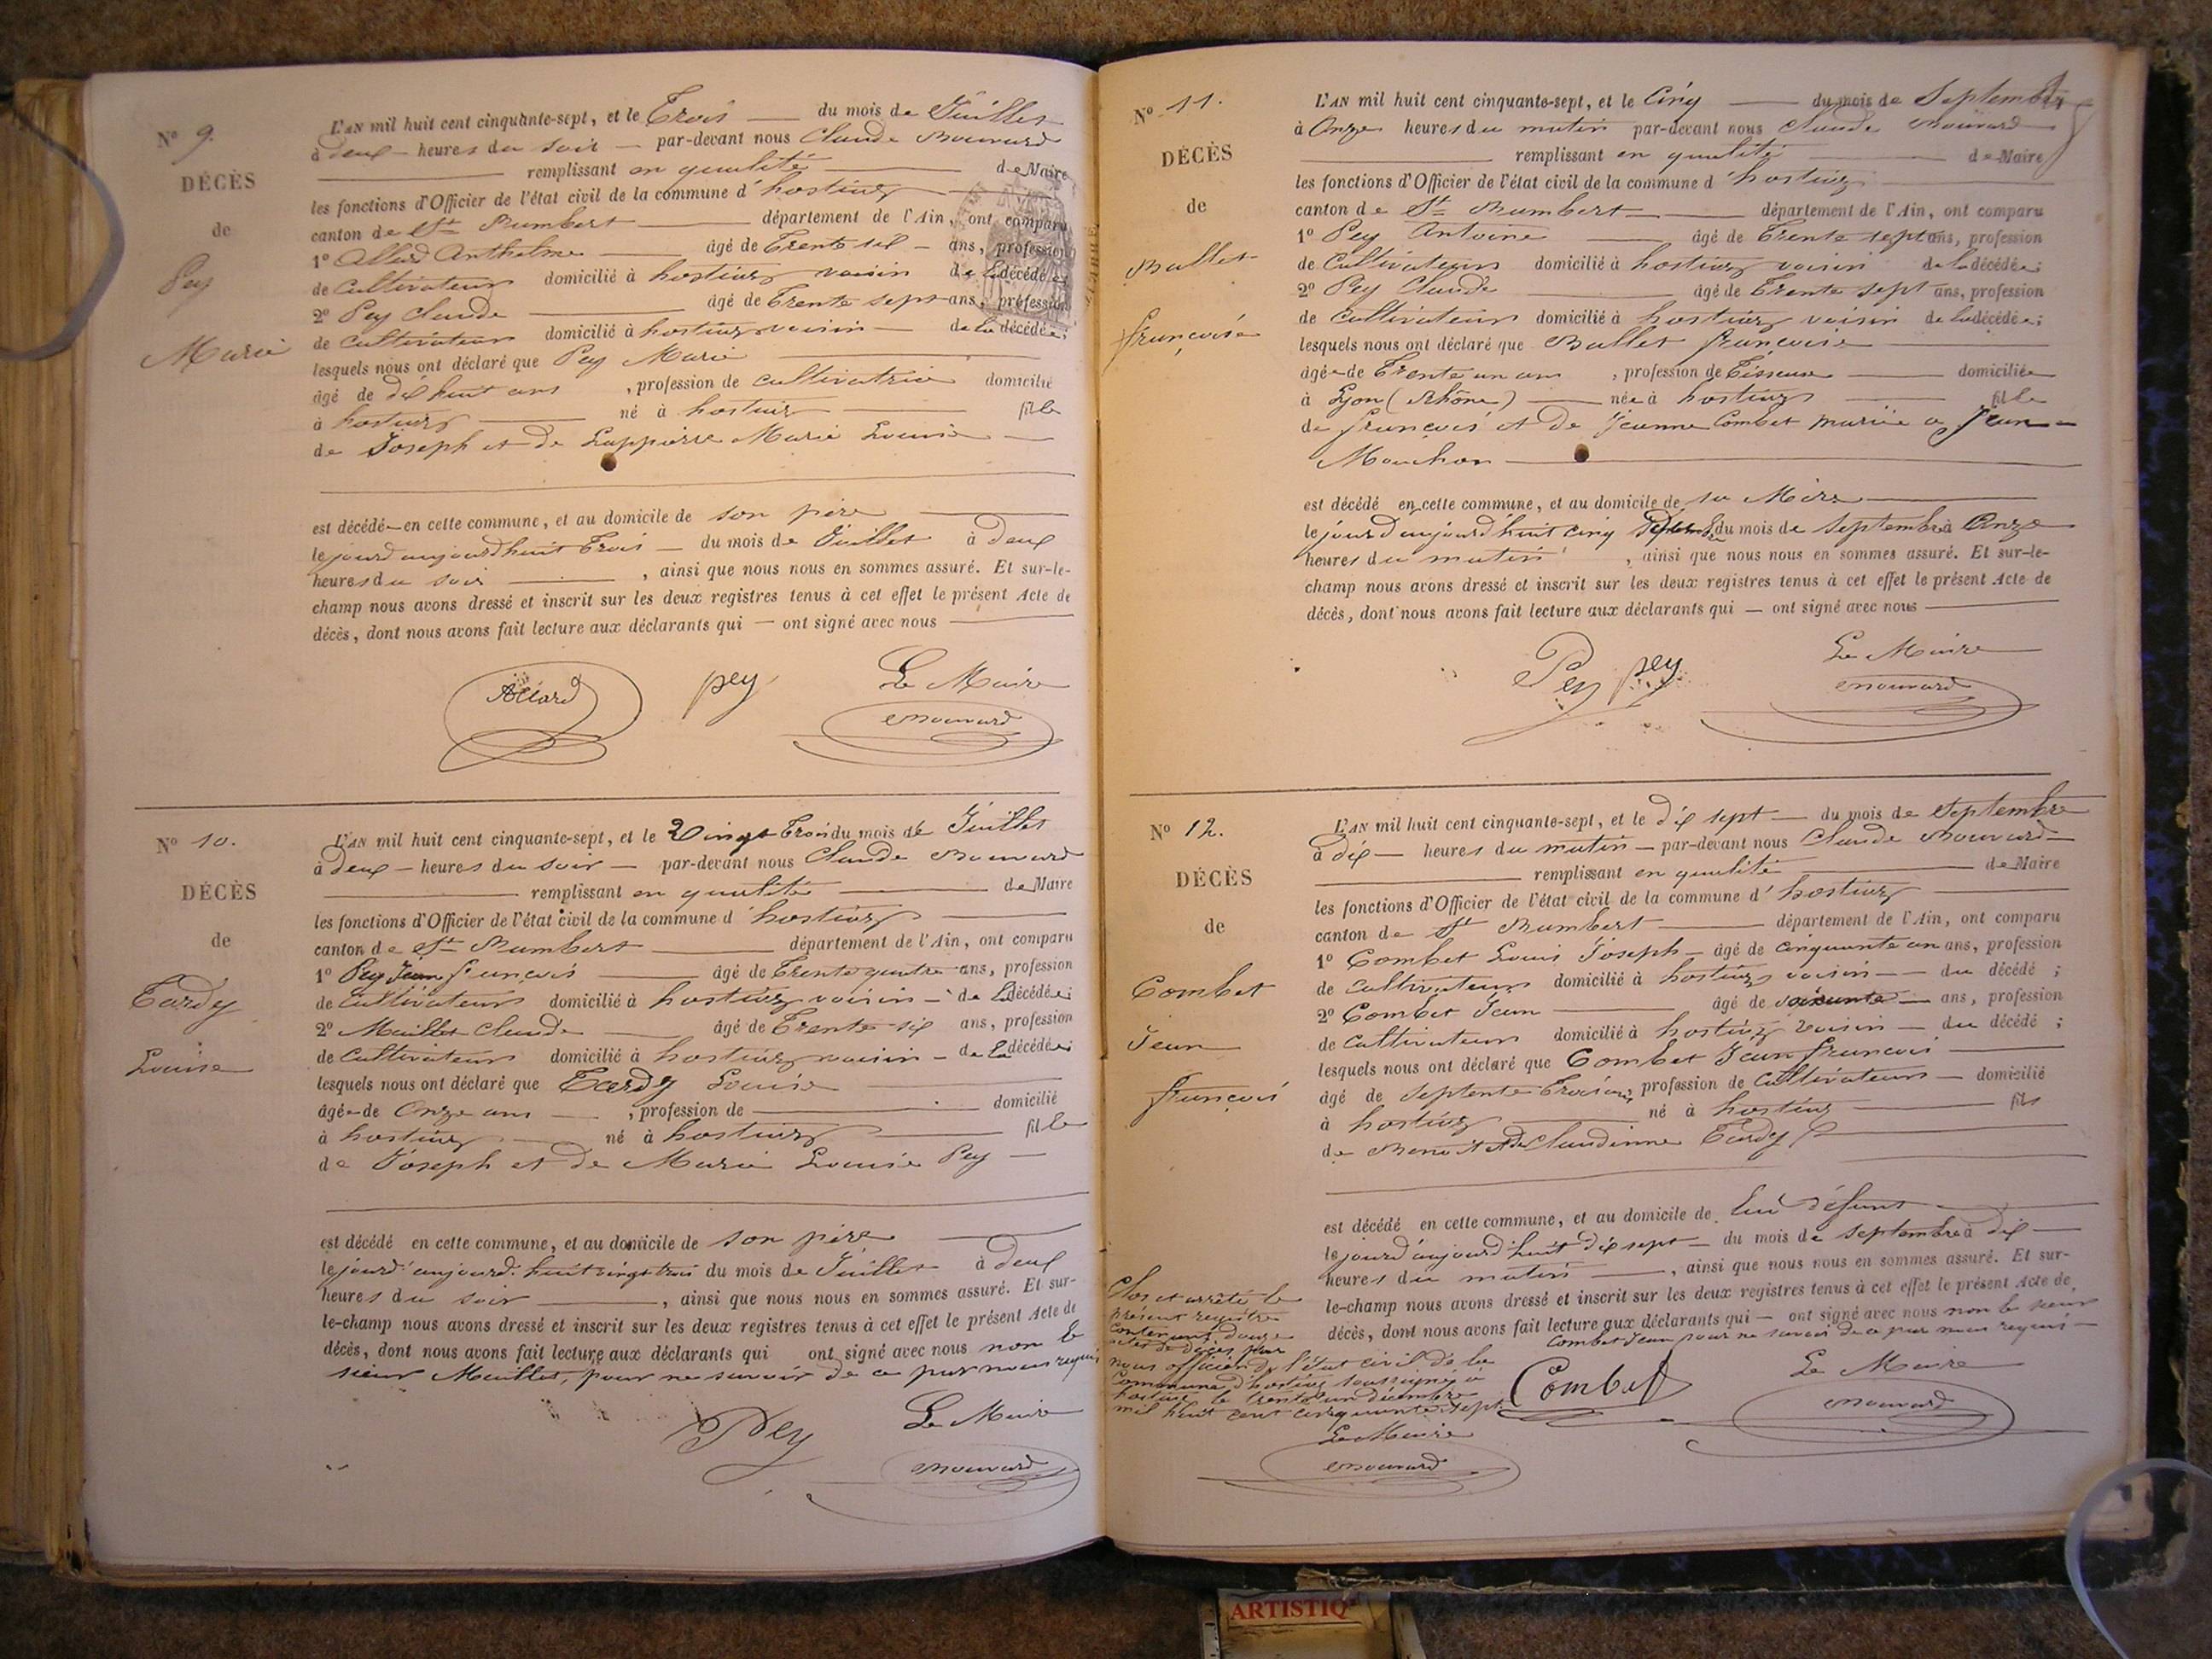 Nº 9.
DÉCÈS
de
Pey
Marie
L'AN mil huit cent cinquante-sept, et le Trois du mois de Juillet
à deux heures du soir par-devant nous Claude Bouvard
remplissant en qualité de Maire
les fonctions d'Officier de l'état civil de la commune d'hostiaz
canton de St Rambert département de l'Ain, ont comparu
1º Allard Anthelme âgé de Trente six ans, profession
de Cultivateur domicilié à hostiaz voisin de la décédée;
2º Pey Claude âgé de Trente sept ans, profession
de Cultivateur domicilié à hostiaz voisin de la décédée;
lesquels nous ont déclaré que Pey Marie
âgé de dix huit ans, profession de Cultivatrice domicilié
à hostiaz né à hostiaz fille
de Joseph et de Lappierre Marie Louise
est décédé en cette commune, et au domicile de son père
le jourd aujourdhuit Trois du mois de Juillet à deux
heures du soir, ainsi que nous nous en sommes assuré. Et sur-le-
champ nous avons dressé et inscrit sur les deux registres tenus à cet effet le présent Acte de
décès, dont nous avons fait lecture aux déclarants qui — ont signé avec nous
Allard pey Le Maire
Bouvard
Nº 10.
DÉCÈS
de
Tardy
Louise
L'AN mil huit cent cinquante-sept, et le Vingt Trois du mois de Juillet
à deux heures du soir par-devant nous Claude Bouvard
remplissant en qualité de Maire
les fonctions d'Officier de l'état civil de la commune d'hostiaz
canton de St Rambert département de l'Ain, ont comparu
1º Pey Jean françois âgé de Trente quatre ans, profession
de Cultivateur domicilié à hostiaz voisin de la décédée;
2º Maillet Claude âgé de Trente six ans, profession
de Cultivateur domicilié à hostiaz voisin de la décédée;
lesquels nous ont déclaré que Tardy Louise
âgée de Onze ans, profession de domicilié
à hostiaz né à hostiaz fille
de Joseph et de Marie Louise Pey
est décédé en cette commune, et au domicile de son père
le jourd'aujourd'huit vingt trois du mois de Juillet à deux
heures du soir, ainsi que nous nous en sommes assuré. Et sur-
le-champ nous avons dressé et inscrit sur les deux registres tenus à cet effet le présent Acte de
décès, dont nous avons fait lecture aux déclarants qui ont signé avec nous non le
sieur Maillet, pour ne savoir de ce par nous requis
Pey Le Maire
Bouvard
Nº 11.
DÉCÈS
de
Ballet
françoise
L'AN mil huit cent cinquante-sept, et le Cinq du mois de Septembre
à Onze heures du matin par-devant nous Claude Bouvard
remplissant en qualité de Maire
les fonctions d'Officier de l'état civil de la commune d'hostiaz
canton de St Rambert département de l'Ain, ont comparu
1º Pey Antoine âgé de Trente sept ans, profession
de Cultivateur domicilié à hostiaz voisin de la décédée;
2º Pey Claude âgé de Trente sept ans, profession
de Cultivateur domicilié à hostiaz voisin de la décédée;
lesquels nous ont déclaré que Ballet françoise
âgée de Trente un ans, profession de Tisseuse domiciliée
à Lyon (Rhône) née à hostiaz fille
de françois et de Jeanne Combet mariée a Jean
Mouchon
est décédé en cette commune, et au domicile de sa Mère
le jourd'aujourd'huit cinq du mois de Septembre à Onze
heures du matin, ainsi que nous nous en sommes assuré. Et sur-le-
champ nous avons dressé et inscrit sur les deux registres tenus à cet effet le présent Acte de
décès, dont nous avons fait lecture aux déclarants qui — ont signé avec nous
Pey pey Le Maire
Bouvard
Nº 12.
DÉCÈS
de
Combet
Jean
françois
L'AN mil huit cent cinquante-sept, et le dix sept du mois de Septembre
à dix heures du matin par-devant nous Claude Bouvard
remplissant en qualité de Maire
les fonctions d'Officier de l'état civil de la commune d'hostiaz
canton de St Rambert département de l'Ain, ont comparu
1º Combet Louis Joseph âgé de Cinquante un ans, profession
de Cultivateur domicilié à hostiaz voisin du décédé;
2º Combet Jean âgé de soixante ans, profession
de Cultivateur domicilié à hostiaz voisin du décédé;
lesquels nous ont déclaré que Combet Jean françois
âgé de Septente Trois ans, profession de Cultivateur domicilié
à hostiaz né à hostiaz fils
de Benoit et de Claudinne Tardy
est décédé en cette commune, et au domicile de lui défunt
le jourd'aujourd'huit dix sept du mois de Septembre à dix
heures du matin, ainsi que nous nous en sommes assuré. Et sur-
le-champ nous avons dressé et inscrit sur les deux registres tenus à cet effet le présent Acte de
décès, dont nous avons fait lecture aux déclarants qui — ont signé avec nous non le sieur
Combet Jean pour ne savoir de ce par nous requis
Combet Le Maire
Bouvard
Clos et arrêté le
présent registre
contenant douze
actes de décès par
nous officier de l'état civil de la
Commune d'hostiaz soussigné à
hostiaz le trente un décembre
mil huit cent cinquante sept
Le Maire
Bouvard
ARTISTIQ